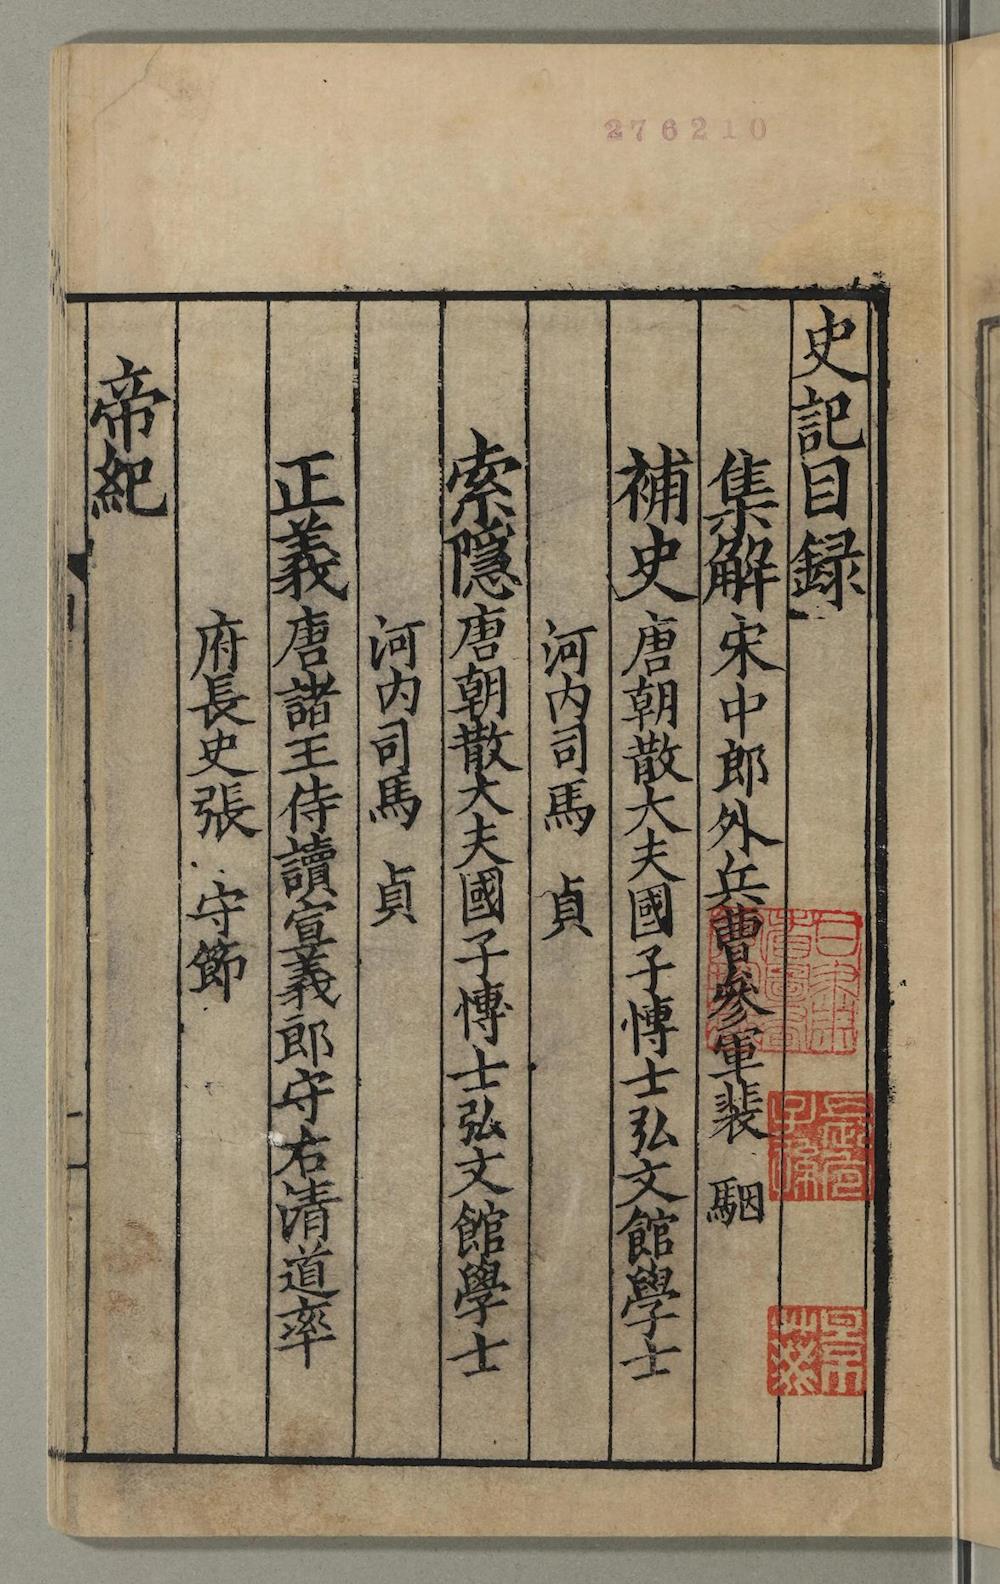 276210
史記目録
集解宋中郎外兵曹參軍裴 駰
補史唐朝散大夫國子愽士弘文館學士
河内司馬 貞
索隱唐朝散大夫國子愽士弘文館學士
河内司馬 貞
正義唐諸王侍讀宣義郎守右清道率
府長史張 守節
帝紀